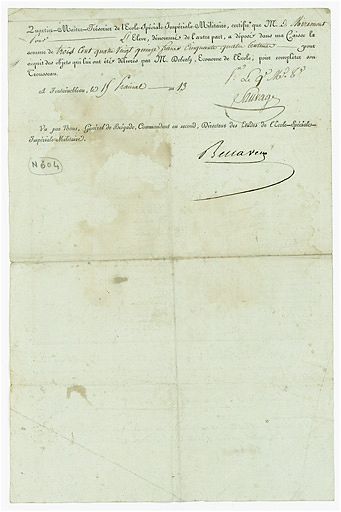 Quartier-Maitre-Trésorier de l'Ecole-Spéciale-Impériale-Militaire, certifie que M. 
Elève, dénommé de l'autre part, a déposé dans ma Caisse la
somme de trois cent quatre vingt quinze francs cinquante quatre centimes pour
acquit des objets qui lui ont été délivrés par M. Dobaly, Econome de l'Ecole, pour completter son
Trousseau.
A Fontainebleau, le 15 frimaire an 13
Pr. Le qr. Me. tr.
Sauvage
Vu par Nous, Général de Brigade, Commandant en second, Directeur des Etudes de l'Ecole-Spéciale-
Impériale-Militaire.
N 604
Bellavene